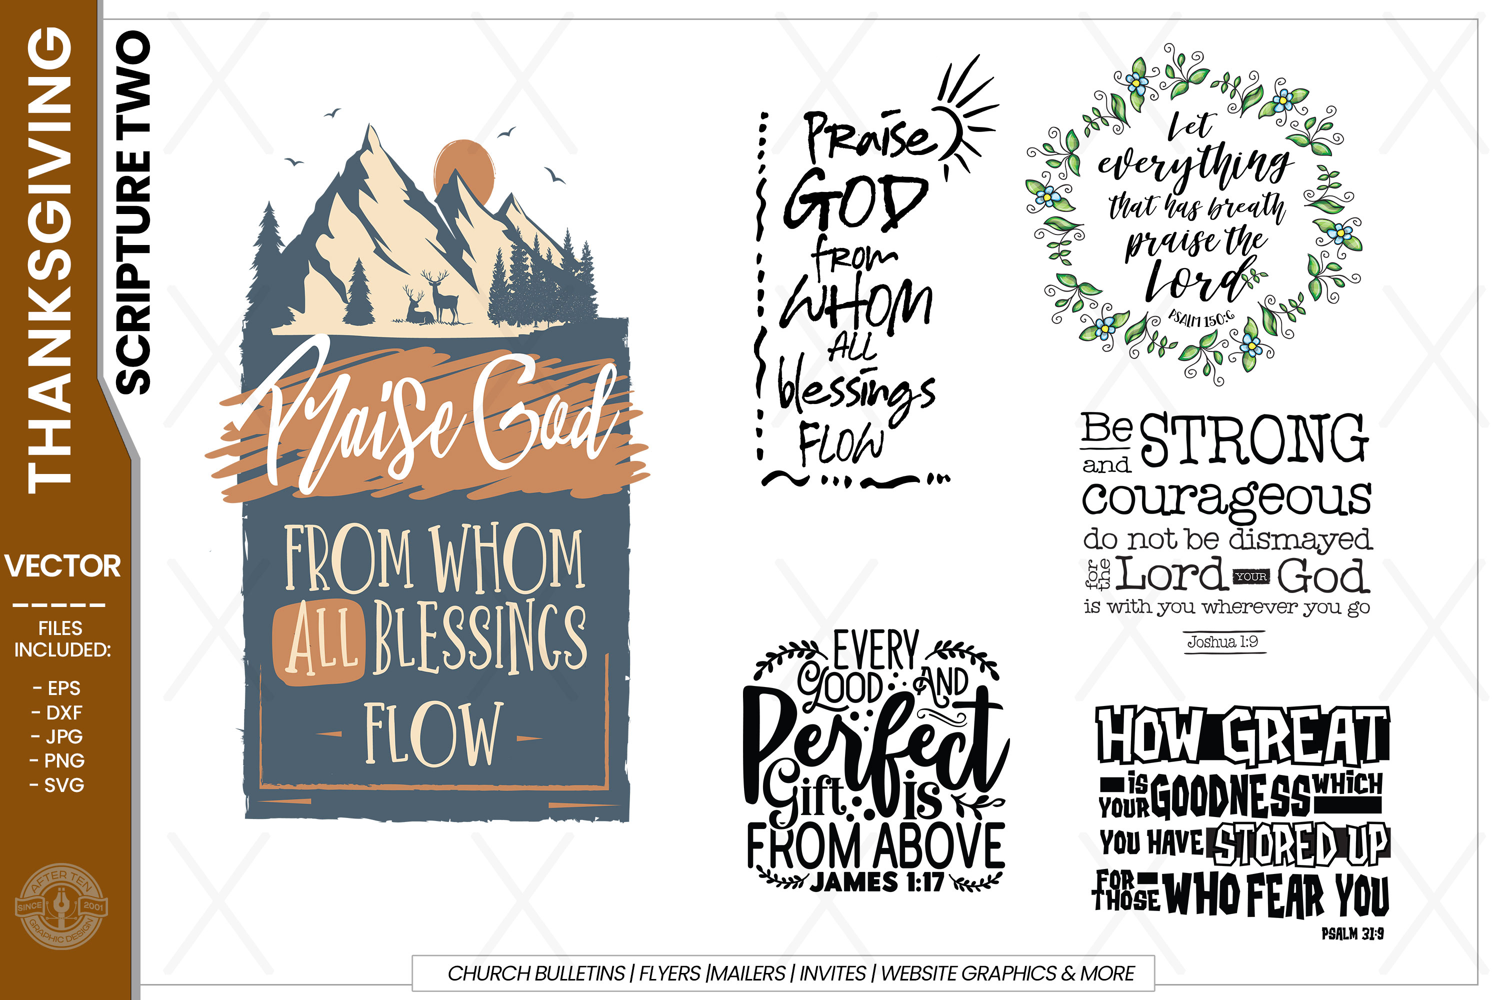 THANKSGIVING
SCRIPTURE TWO
VECTOR
FILES
INCLUDED:
- EPS
- DXF
- JPG
- PNG
- SVG
AFTER TEN
SINCE 2001
GRAPHIC DESIGN
Praise God
FROM WHOM
ALL BLESSINGS
FLOW
Praise
GOD
from
WHOM
ALL
blessings
FLOW
Let
everything
that has breath
praise the
Lord
PSALM 150:6
Be STRONG
and
courageous
do not be dismayed
for the Lord YOUR God
is with you wherever you go
Joshua 1:9
EVERY
GOOD AND
Perfect
Gift is
FROM ABOVE
JAMES 1:17
HOW GREAT
IS YOUR GOODNESS WHICH
YOU HAVE STORED UP
FOR THOSE WHO FEAR YOU
PSALM 31:9
CHURCH BULLETINS | FLYERS |MAILERS | INVITES | WEBSITE GRAPHICS & MORE